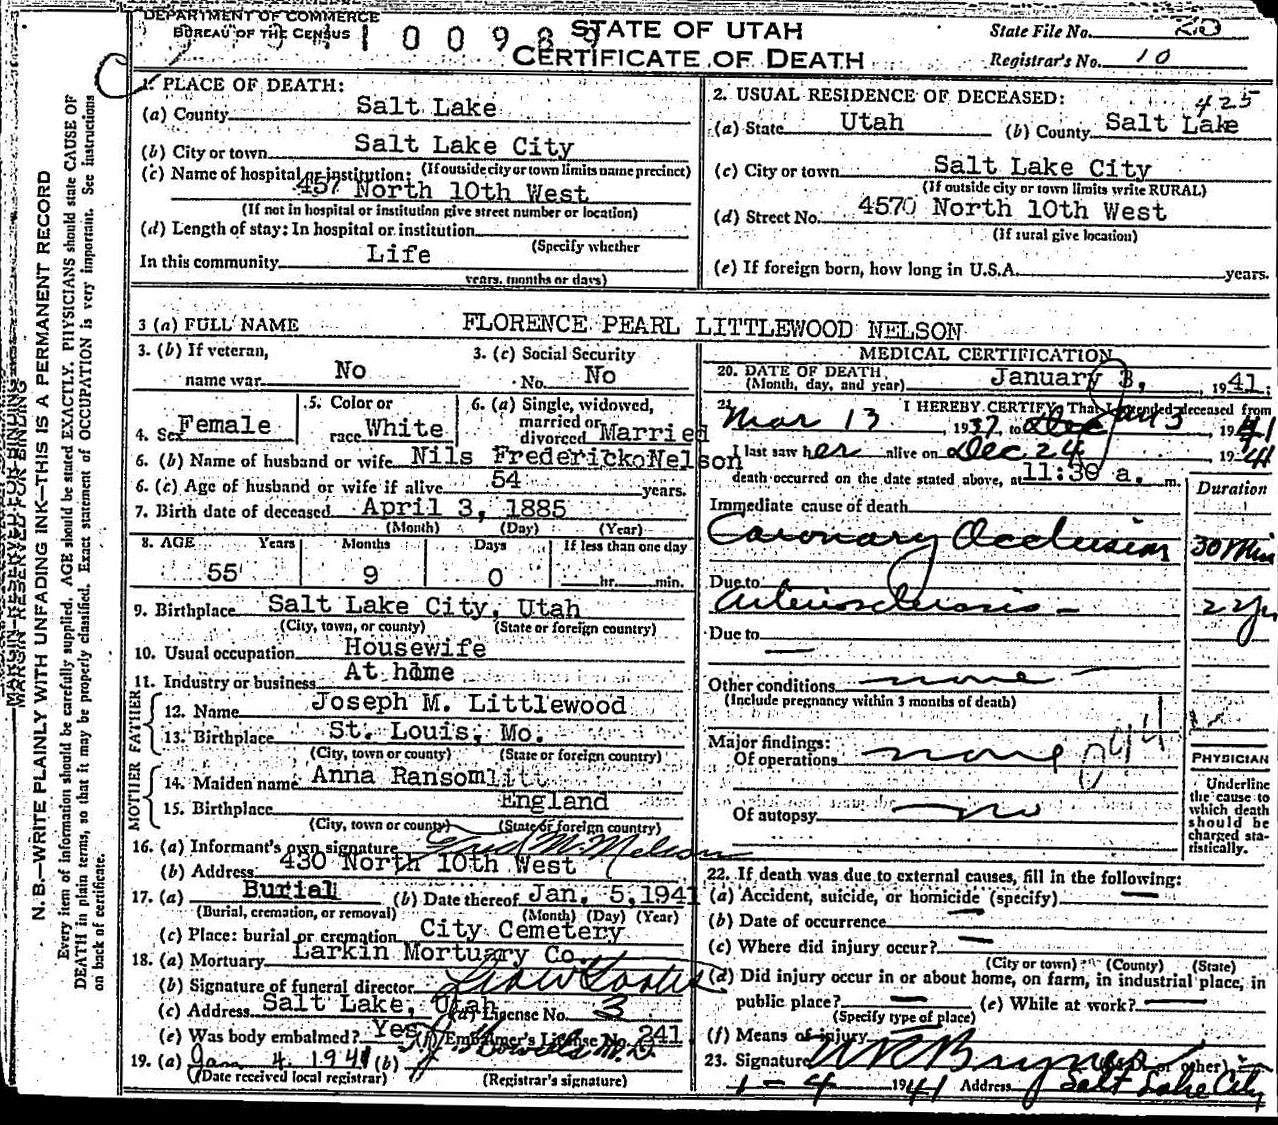 DEPARTMENT OF COMMERCE
BUREAU OF THE CENSUS
STATE OF UTAH
CERTIFICATE OF DEATH
State File No. 20
Registrar's No. 10
MARGIN RESERVED FOR BINDING
N. B.—WRITE PLAINLY WITH UNFADING INK—THIS IS A PERMANENT RECORD
Every item of information should be carefully supplied. AGE should be stated EXACTLY. PHYSICIANS should state CAUSE OF
DEATH in plain terms, so that it may be properly classified. Exact statement of OCCUPATION is very important. See instructions
on back of certificate.
1. PLACE OF DEATH:
(a) County Salt Lake
(b) City or town Salt Lake City
(If outside city or town limits name precinct)
(c) Name of hospital or institution:
457 North 10th West
(If not in hospital or institution give street number or location)
(d) Length of stay: In hospital or institution
(Specify whether
In this community Life
years, months or days)
2. USUAL RESIDENCE OF DECEASED:
425
(a) State Utah (b) County Salt Lake
(c) City or town Salt Lake City
(If outside city or town limits write RURAL)
(d) Street No. 4570 North 10th West
(If rural give location)
(e) If foreign born, how long in U.S.A. years.
3 (a) FULL NAME FLORENCE PEARL LITTLEWOOD NELSON
3. (b) If veteran,
name war No
3. (c) Social Security
No. No
4. Sex Female
5. Color or
race White
6. (a) Single, widowed,
married or
divorced Married
6. (b) Name of husband or wife Nils Frederick Nelson
6. (c) Age of husband or wife if alive 54 years.
7. Birth date of deceased April 3, 1885
(Month) (Day) (Year)
8. AGE Years Months Days If less than one day
55 9 0 hr. min.
9. Birthplace Salt Lake City, Utah
(City, town, or county) (State or foreign country)
10. Usual occupation Housewife
11. Industry or business At home
FATHER
12. Name Joseph M. Littlewood
13. Birthplace St. Louis, Mo.
(City, town or county) (State or foreign country)
MOTHER
14. Maiden name Anna Ransom
15. Birthplace England
(City, town or county) (State or foreign country)
16. (a) Informant's own signature Fred M. Nelson
(b) Address 430 North 10th West
17. (a) Burial (b) Date thereof Jan. 5, 1941
(Burial, cremation, or removal) (Month) (Day) (Year)
(c) Place: burial or cremation City Cemetery
18. (a) Mortuary Larkin Mortuary Co.
(b) Signature of funeral director
(c) Address Salt Lake, Utah (d) License No. 3
(e) Was body embalmed? Yes (f) Embalmer's License No. 241
19. (a) Jan 4. 1941 (b)
(Date received local registrar) (Registrar's signature)
MEDICAL CERTIFICATION
20. DATE OF DEATH
(Month, day, and year) January 3, 1941.
21. I HEREBY CERTIFY, That I attended deceased from
Mar 13 1937, to Jan 3, 1941
I last saw her alive on Dec 24 19
death occurred on the date stated above, at 11:30 a. m.
Duration
Immediate cause of death
Coronary Occlusion 30 Min
Due to
Arteriosclerosis 2 yr
Due to —
Other conditions none
(Include pregnancy within 3 months of death)
Major findings:
Of operations none
094
Of autopsy no
PHYSICIAN
Underline
the cause to
which death
should be
charged sta-
tistically.
22. If death was due to external causes, fill in the following:
(a) Accident, suicide, or homicide (specify) —
(b) Date of occurrence —
(c) Where did injury occur? —
(City or town) (County) (State)
(d) Did injury occur in or about home, on farm, in industrial place, in
public place? — (e) While at work? —
(Specify type of place)
(f) Means of injury
23. Signature or other)
1-4 1941 Address Salt Lake City